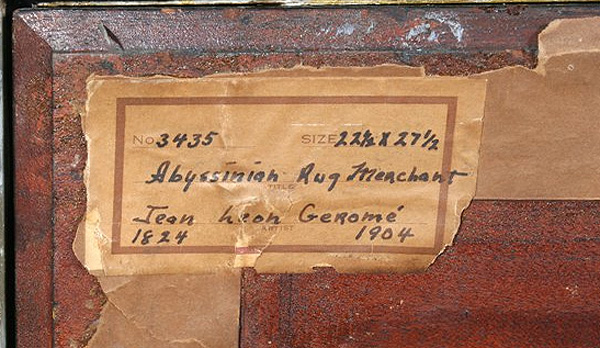 No 3435 SIZE 22½ X 27½
Abyssinian Rug Merchant
TITLE
Jean Leon Geromé
ARTIST
1824 1904